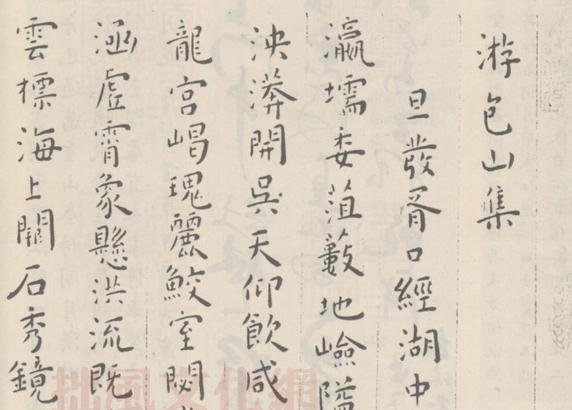 游包山集
旦發胥口經湖中
瀛壖委菹藪地嶮隘
泱漭開吳天仰飲咸
龍宮嵑瑰麗鮫室閟
涵虛霄象懸洪流既
雲標海上闢石秀鏡
拙風文化網